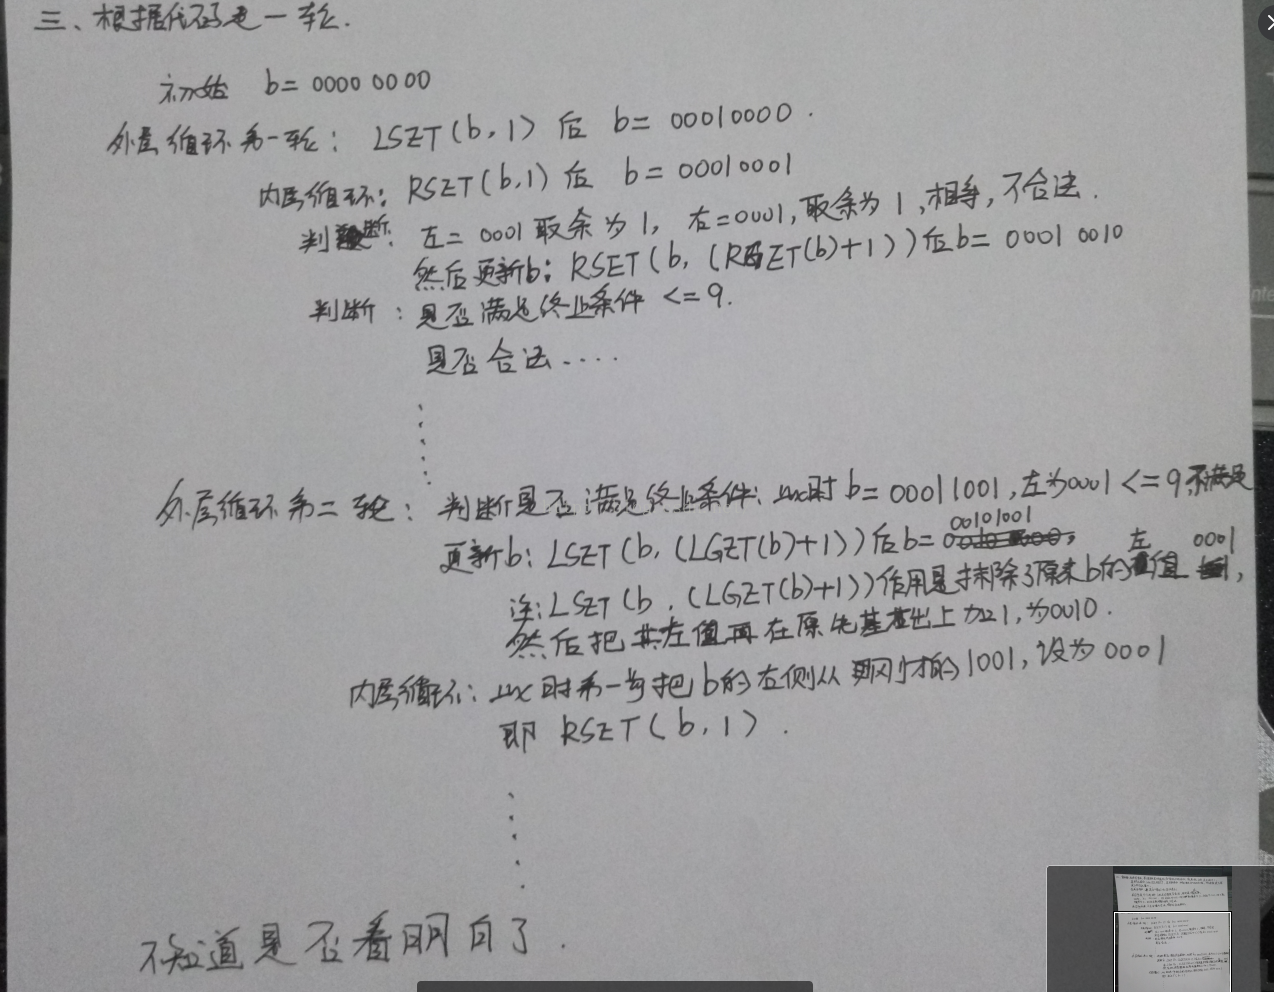 三、根据代码走一轮.
初始 b= 0000 0000
外层循环第一轮: LSET(b,1) 后 b= 00010000 .
内层循环: RSET(b,1) 后 b= 00010001
判断: 左= 0001 取余为 1, 右=0001, 取余为 1, 相等, 不合法.
然后更新b: RSET(b, (RGET(b)+1))后b= 0001 0010
判断: 是否满足终止条件 <=9.
是否合法....
外层循环第二轮: 判断是否满足终止条件: 此时 b= 00011001, 左为0001 <=9, 不满足
更新b: LSET(b, (LGET(b)+1))后b= 00101001
注: LSET(b, (LGET(b)+1))作用是抹除了原来b的左值 0001,
然后把其左值再在原先基础上加1, 为0010.
内层循环: 此时第一步把b的右侧从刚才的1001, 设为 0001
即 RSET(b,1).
不知道是否看明白了.